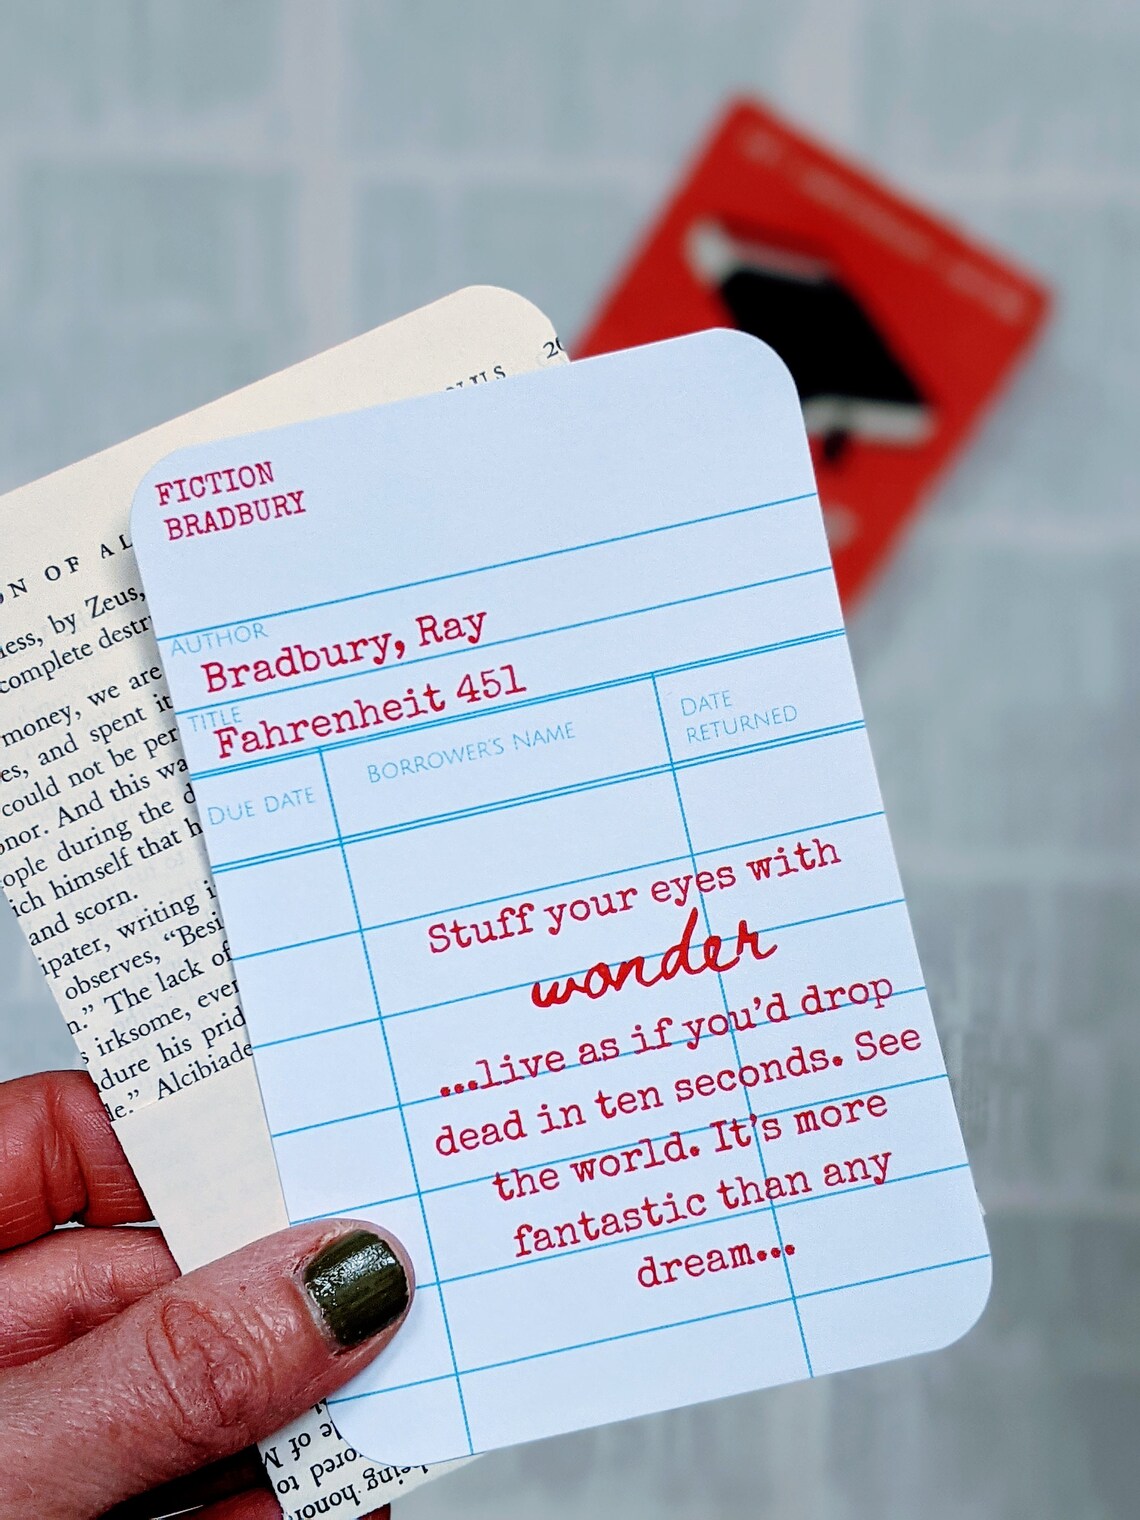 FICTION
BRADBURY
AUTHOR
Bradbury, Ray
TITLE
Fahrenheit 451
DUE DATE
BORROWER'S NAME
DATE
RETURNED
Stuff your eyes with
wonder
...live as if you'd drop
dead in ten seconds. See
the world. It's more
fantastic than any
dream...
OF AL
by Zeus,
complete
money, we are
and spent it
could not be
And this
people during the
himself that
and scorn.
writing
observes, "Besi
The lack of
irksome, ever
his prid
Alcibiade
of M
to
being honor